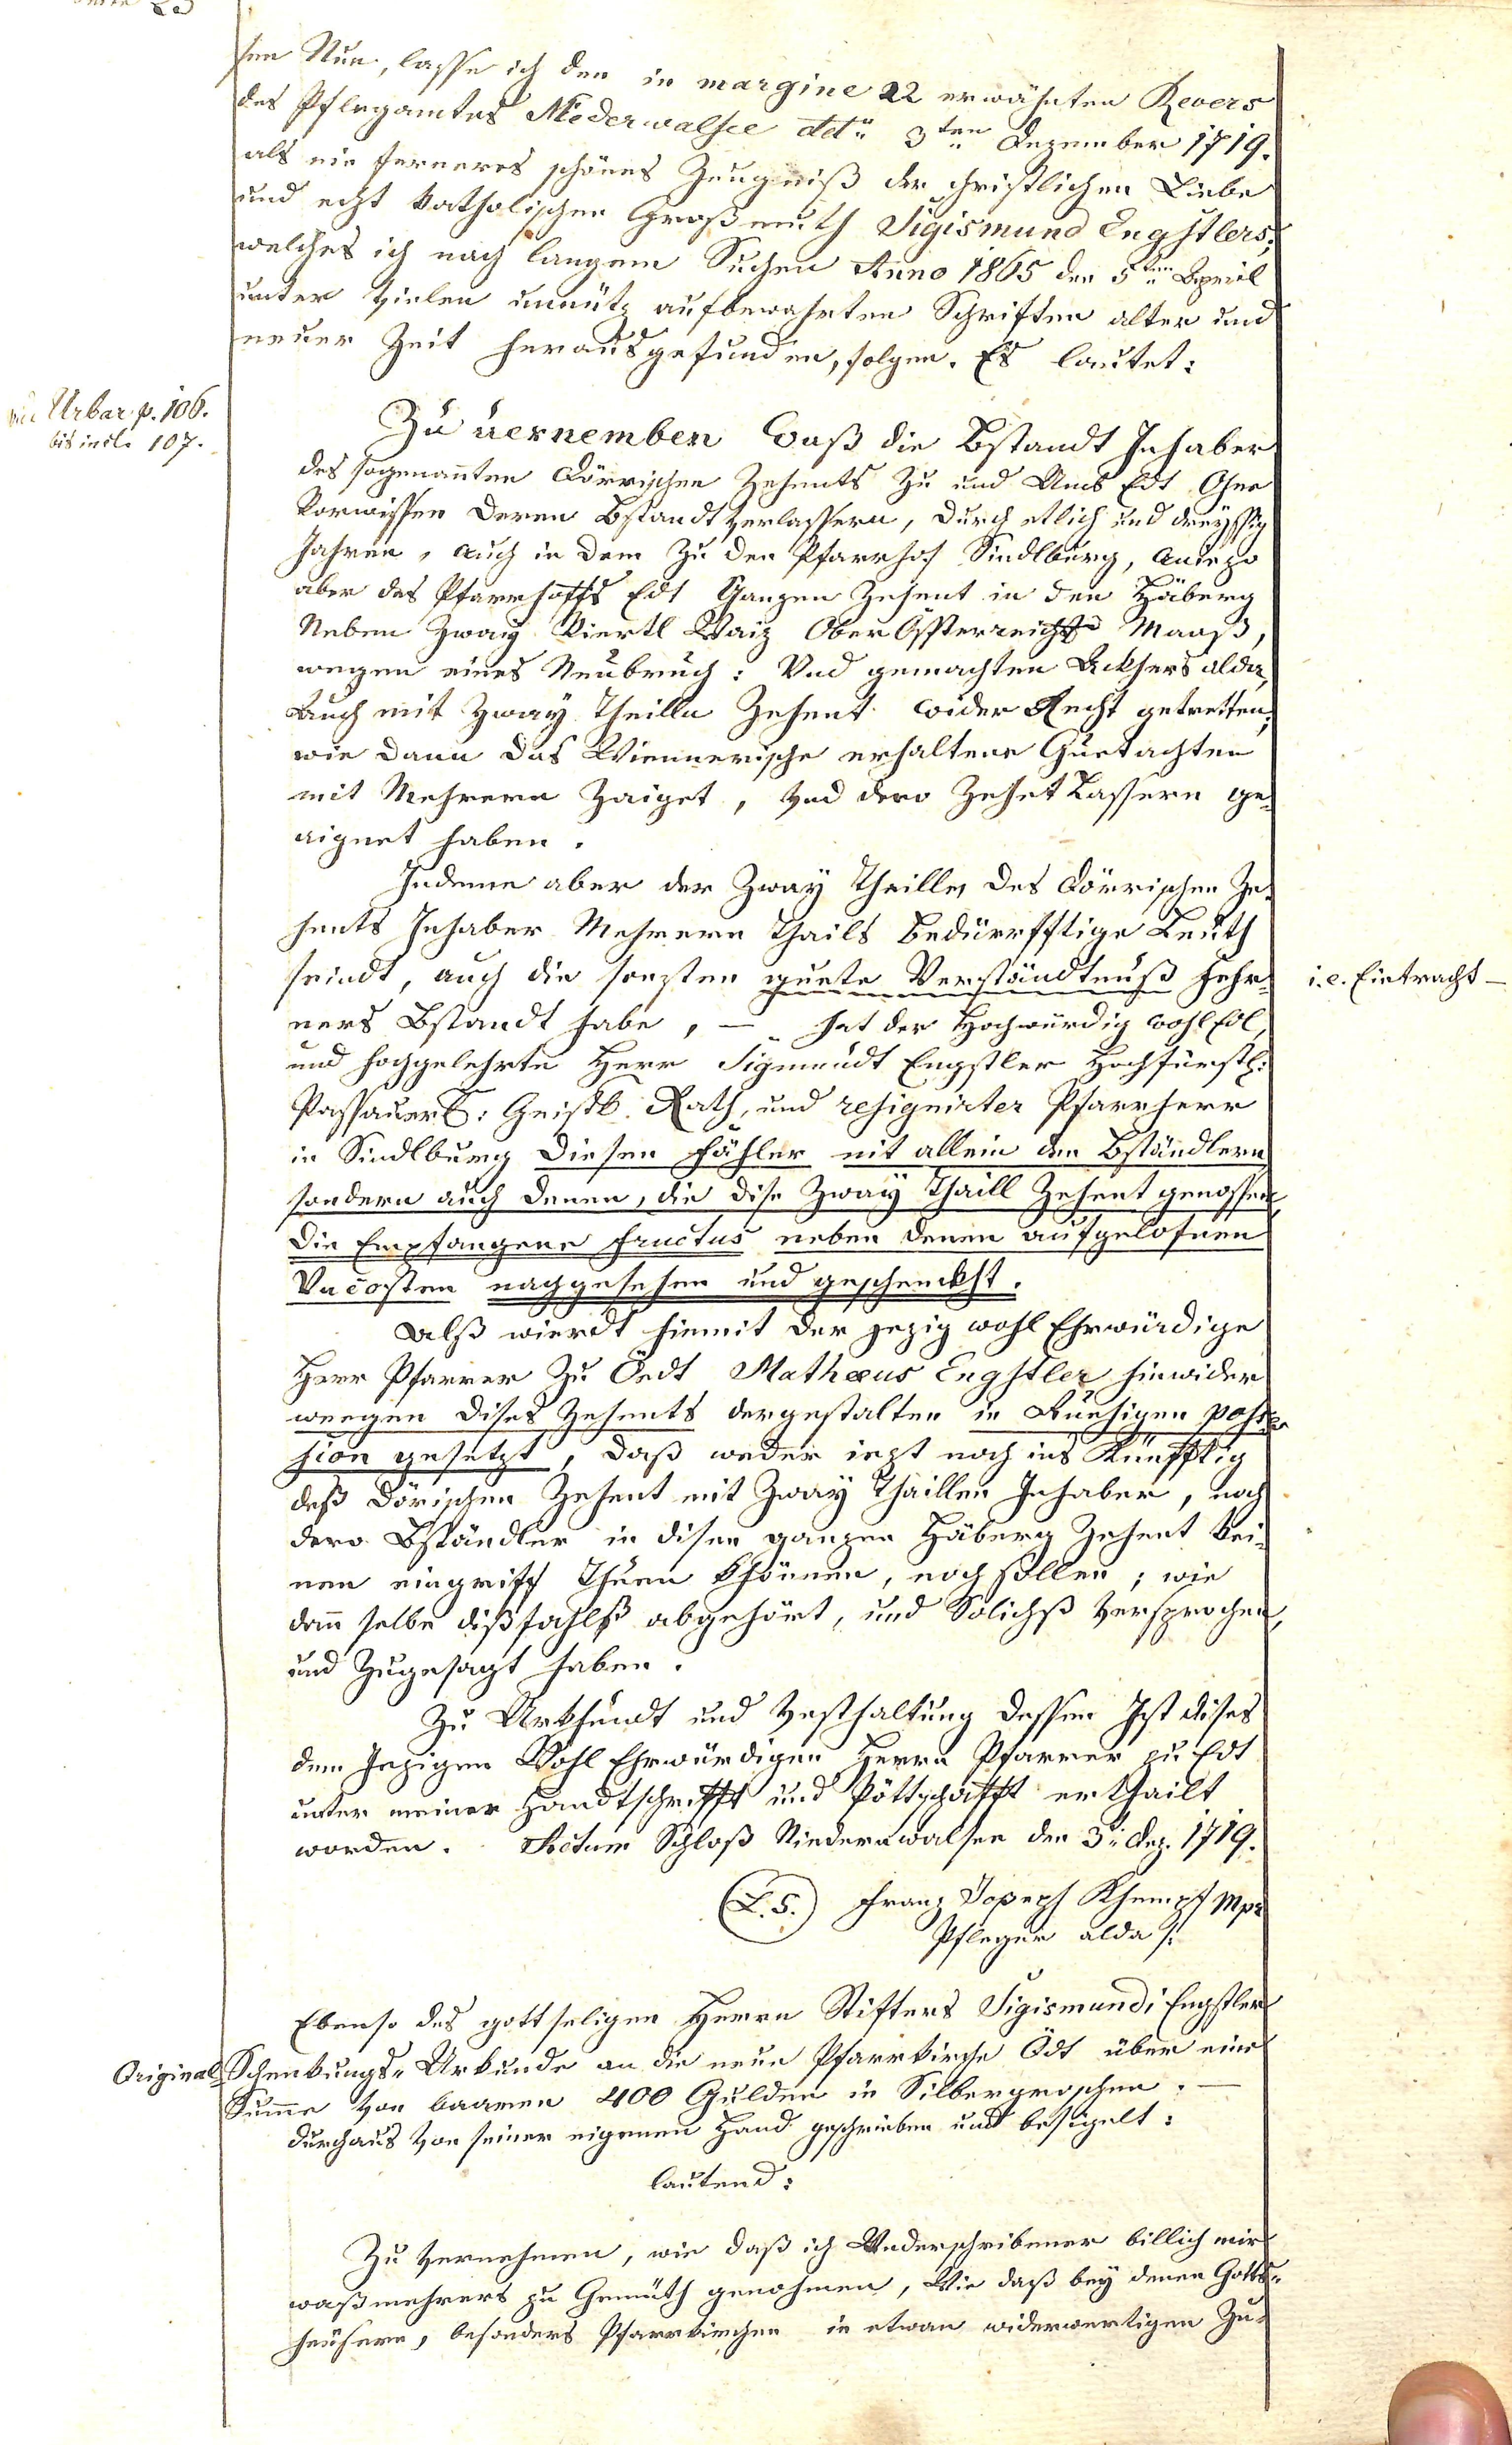 sen Nun, lasse ich den in margine 22 erwähnten Revers
des Pflegamtes Niederwalsee ddto 3ten Dezember 1719.
als ein ferneres schönes Zeugniß der christlichen Liebe
und echt katholischen Großmuth Sigismund Engstlers,
welches ich nach langem Suchen Anno 1865 den 5ten April
unter vielen unnütz aufbewahrten Schriften alter und
neuer Zeit herausgefunden, folgen. Es lautet:
Urbar p. 106.
bis incl. 107.
Zu vernemben daß die Bstandt Inhaber
des sogenannten Dörrischen Zehents zu und Umb Edt Ohne
Vorwissen deren Bstandtverlassern, durch etlich und dreyssig
Jahren, auch in dem zu den Pfarrhof Sindlburg, aniezo
aber des Pfarrhoffs Edt Ganzen Zehent in den Häberg
Neben Zway Viertl Waiz Ober Össterreichs Maaß,
wegen eines Neubruch: Und gemachten Ackhers alda,
Auch mit Zway Theilln Zehent wider Recht getretten,
wie dann das Wiennerische erhaltene Guetachten
mit Mehrern Zaiget, und dero Zehet Lassern ge-
aignet haben.
Indeme aber der Zway Theille, des Dörrischen Ze-
hents Inhaber Mehrern Thails Bedürrfftige Leuth
seindt, auch die sonsten guete Verständtnuß Fehr-
i.e. Eintracht –
ners Bstandt habe, – hat der Hochwürdig wohl Edl
und hochgelehrte Herr Sigmundt Engstler Hochfürstl:
Passauerl: Geistl. Rath, und resignirter Pfarrherr
in Sindlburg diesen Fähler nit allein den Bständlern
sondern auch denen, die dise Zway Thaill Zehent genossen
die Empfangene Fructus neben denen aufgelofnen
Uncosten nachgesehen und geschenckht.
Alß wierdt hiemit der jezig wohl Ehrwürdige
Herr Pfarrer zu Öedt Mathæus Engstler hinwider
weegen dises Zehents dergestalten in Ruehigen posses-
sion gesetzt, daß weder iezt noch ins Künfftig
deß Dörischen Zehent mit Zway Thaillen Inhaber, noch
dero Bständler in disen ganzen Häberg Zehent kei-
nen eingriff Thuen khönnen, noch sollen; wie
dann selbe dißfahlß abgehört, und Solichß versprochen,
und Zugesagt haben.
Zu Urkhundt und Vesthaltung dessen Ist dises
dem Jezigen Wohl Ehrwürdigen Herrn Pfarrer zu Edt
unter meiner Handtschrifft und Pöttschafft erthailt
worden. Actum Schloß Niedernwalsee den 3. Dez. 1719.
(L.S.) Franz Joseph Khempf Mpr
Pfleger alda
Ebenso des gottseligen Herrn Stifters Sigismundi Engstler
Original Schenkungs-Urkunde an die neue Pfarrkirche Ödt über eine
Summe von baaren 400 Gulden in Silbergroschen. –
durchaus von seiner eigenen Hand geschrieben und besigelt:
lautend:
Zu vernehmen, wie daß ich Underschribener billich mir
waß mehrers zu Gemüth genohmen, Wie daß bey denen Gotts-
heusern, besonders Pfarrkirchen in etwan widerwertigen Zu-